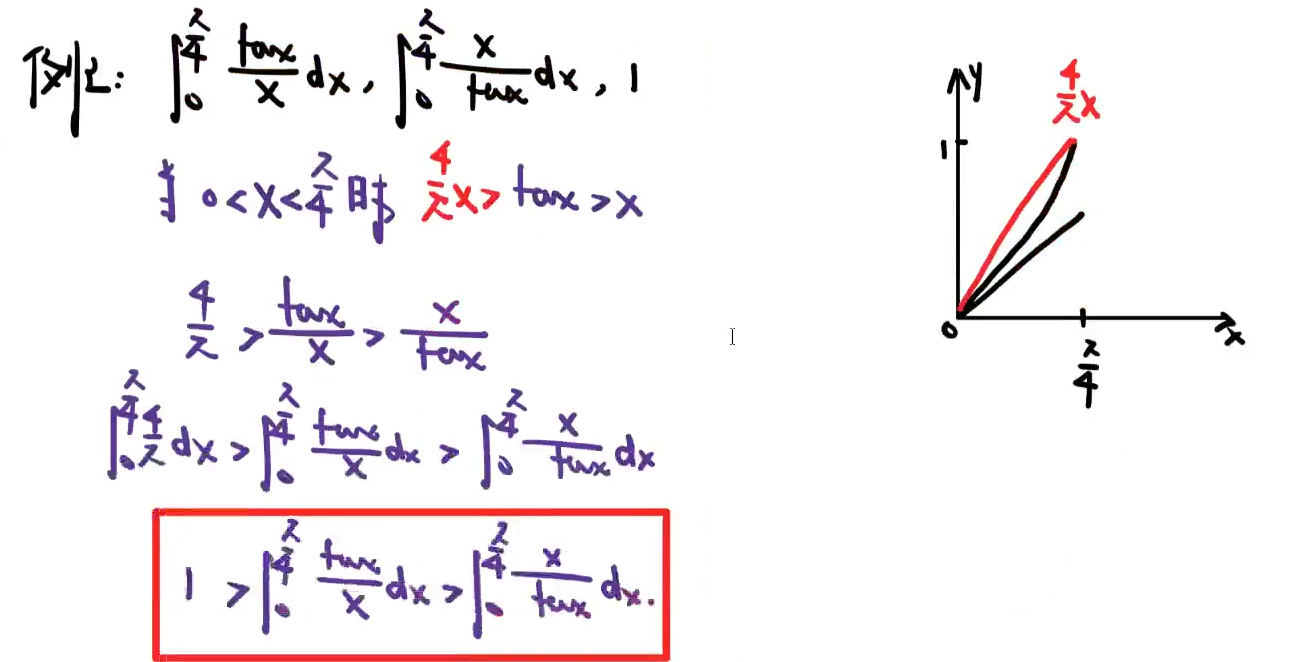 例2: ∫₀^(π/4) tanx/x dx, ∫₀^(π/4) x/tanx dx, 1
当 0<x<π/4 时 4/π x> tanx>x
4/π > tanx/x > x/tanx
∫₀^(π/4) 4/π dx > ∫₀^(π/4) tanx/x dx > ∫₀^(π/4) x/tanx dx
1 > ∫₀^(π/4) tanx/x dx > ∫₀^(π/4) x/tanx dx.
y
4/π x
1
0
x
π/4